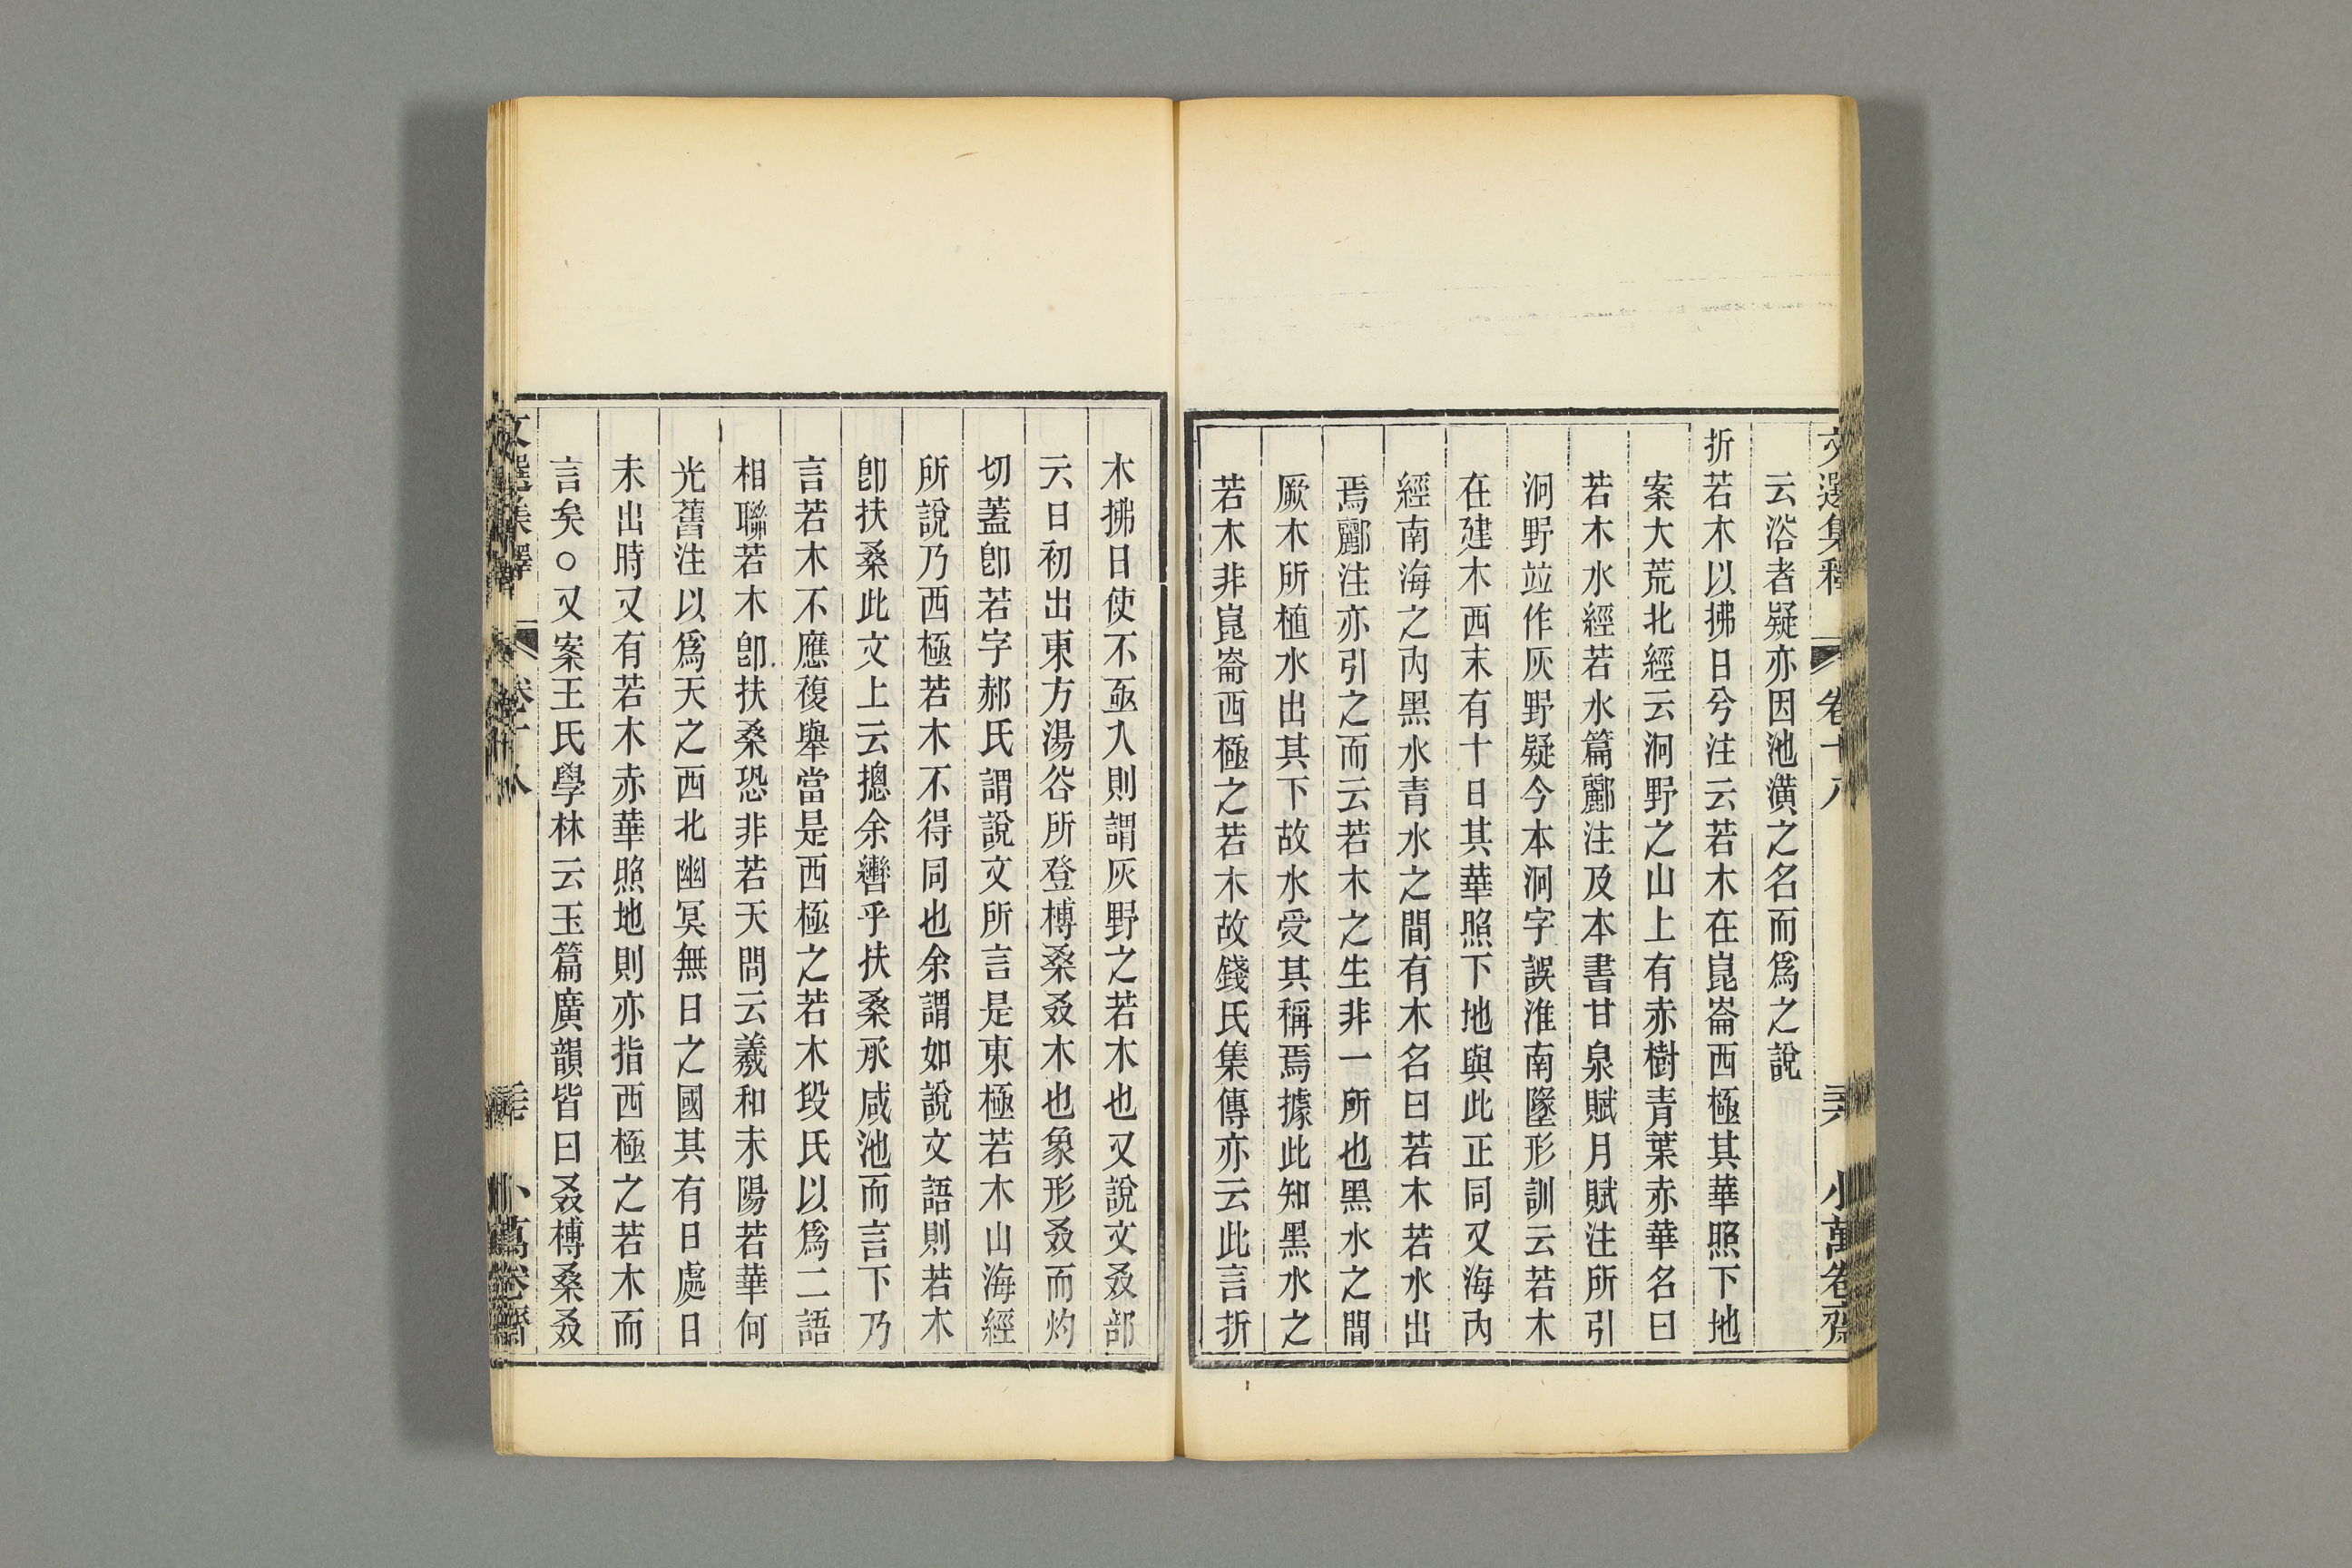 文選集釋 卷十八 小萬卷齋
云浴者疑亦因池潢之名而爲之說
折若木以拂日兮注云若木在崑崙西極其華照下地
案大荒北經云泂野之山上有赤樹青葉赤華名曰
若木水經若水篇酈注及本書甘泉賦月賦注所引
泂野竝作灰野疑今本泂字誤淮南墬形訓云若木
在建木西末有十日其華照下地與此正同又海內
經南海之內黑水青水之間有木名曰若木若水出
焉酈注亦引之而云若木之生非一所也黑水之間
厥木所植水出其下故水受其稱焉據此知黑水之
若木非崑崙西極之若木故錢氏集傳亦云此言折
木拂日使不亟入則謂灰野之若木也又說文叒部
云日初出東方湯谷所登榑桑叒木也象形叒而灼
切蓋卽若字郝氏謂說文所言是東極若木山海經
所說乃西極若木不得同也余謂如說文語則若木
卽扶桑此文上云摠余轡乎扶桑承咸池而言下乃
言若木不應複舉當是西極之若木段氏以爲二語
相聯若木卽扶桑恐非若天問云羲和未陽若華何
光舊注以爲天之西北幽冥無日之國其有日處日
未出時又有若木赤華照地則亦指西極之若木而
言矣○又案王氏學林云玉篇廣韻皆曰叒榑桑叒
文選集釋 卷十八 小萬卷齋